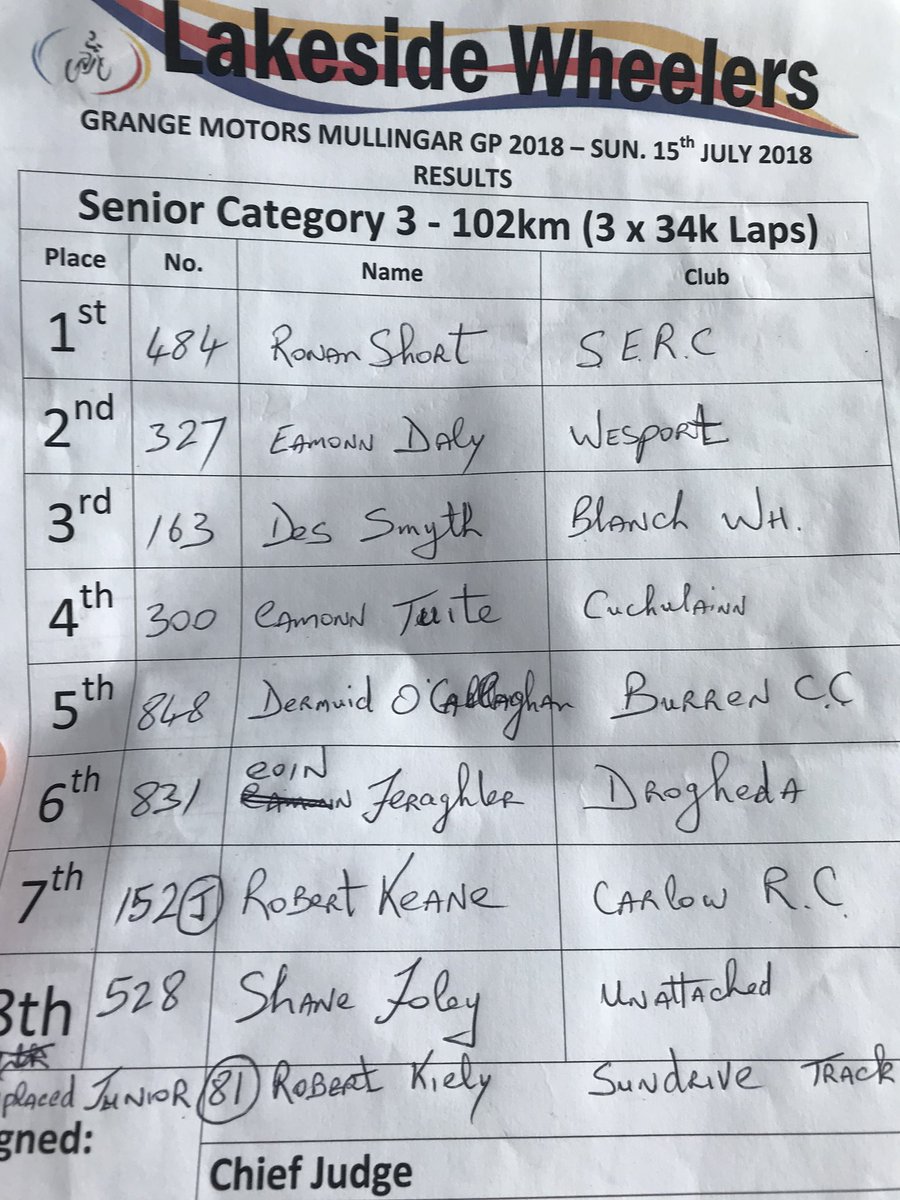 Lakeside Wheelers
GRANGE MOTORS MULLINGAR GP 2018 – SUN. 15th JULY 2018
RESULTS
Senior Category 3 - 102km (3 x 34k Laps)
Place No. Name Club
1st 484 Ronan Short S.E.R.C
2nd 327 Eamonn Daly Wesport
3rd 163 Des Smyth Blanch WH.
4th 300 Eamonn Tuite Cuchulainn
5th 848 Dermuid O'Callaghan Burren C.C
6th 831 Eoin Feraghler Drogheda
7th 152 J Robert Keane Carlow R.C.
8th 528 Shane Foley Unattached
placed Junior 81 Robert Kiely Sundrive Track
gned:
Chief Judge